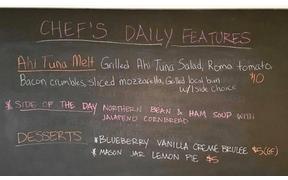 CHEF'S DAILY FEATURES
Ahi Tuna Melt Grilled Ahi Tuna Salad, Roma tomato,
Bacon crumbles, sliced mozzarella, Grilled local bun $10
w/1 side choice
* SIDE OF THE DAY NORTHERN BEAN & HAM SOUP WITH
JALAPENO CORNBREAD
DESSERTS * BLUEBERRY VANILLA CREME BRULEE $5(GF)
* MASON JAR LEMON PIE $5